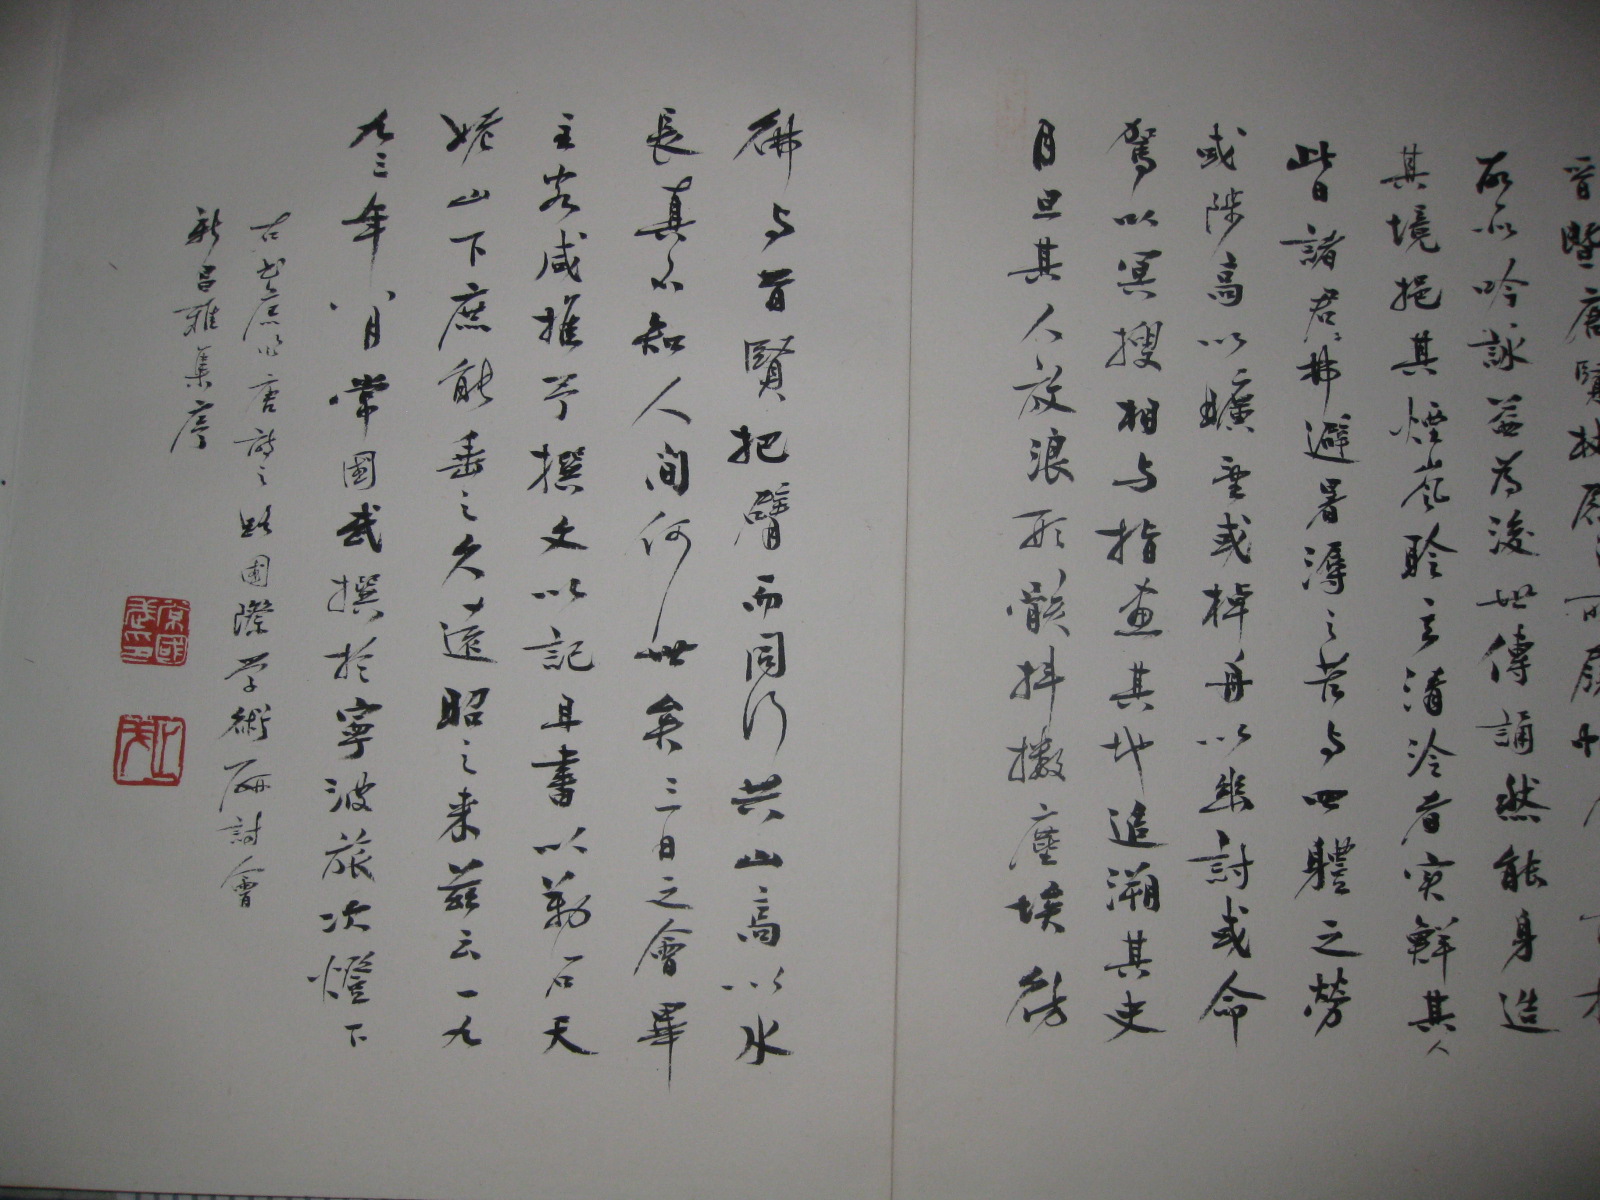 晉暨唐賢
所吟詠益為後世傳誦然能身造
其境挹其煙嵐聆之清泠者實鮮其人
皆日諸君弗避暑溽之苦与四體之勞
或陟高以曠望或棹舟以幽討或命
駕以冥搜相与指畫其地追溯其史
月旦其人放浪形骸抖擻塵埃髣
彿与昔賢把臂而同行共山高以水
長真不知人間何世矣三日之會畢
主客咸推予撰文以記且書以勒石天
姥山下庶能垂之久遠昭之来茲云一九
九三年八月常國武撰於寧波旅次燈下
右書應約唐詩之路國際学術研討會
新昌雅集序
常國武印